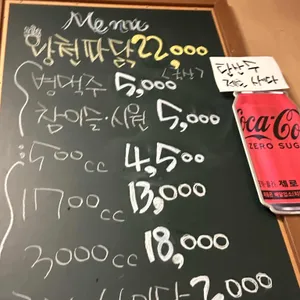 Menu
왕천파닭 22,000
병맥주 5,000
참이슬·시원 5,000
500cc 4,500
1700cc 13,000
3000cc 18,000
2,000
탄산수
Coca-Co
ZERO SUG